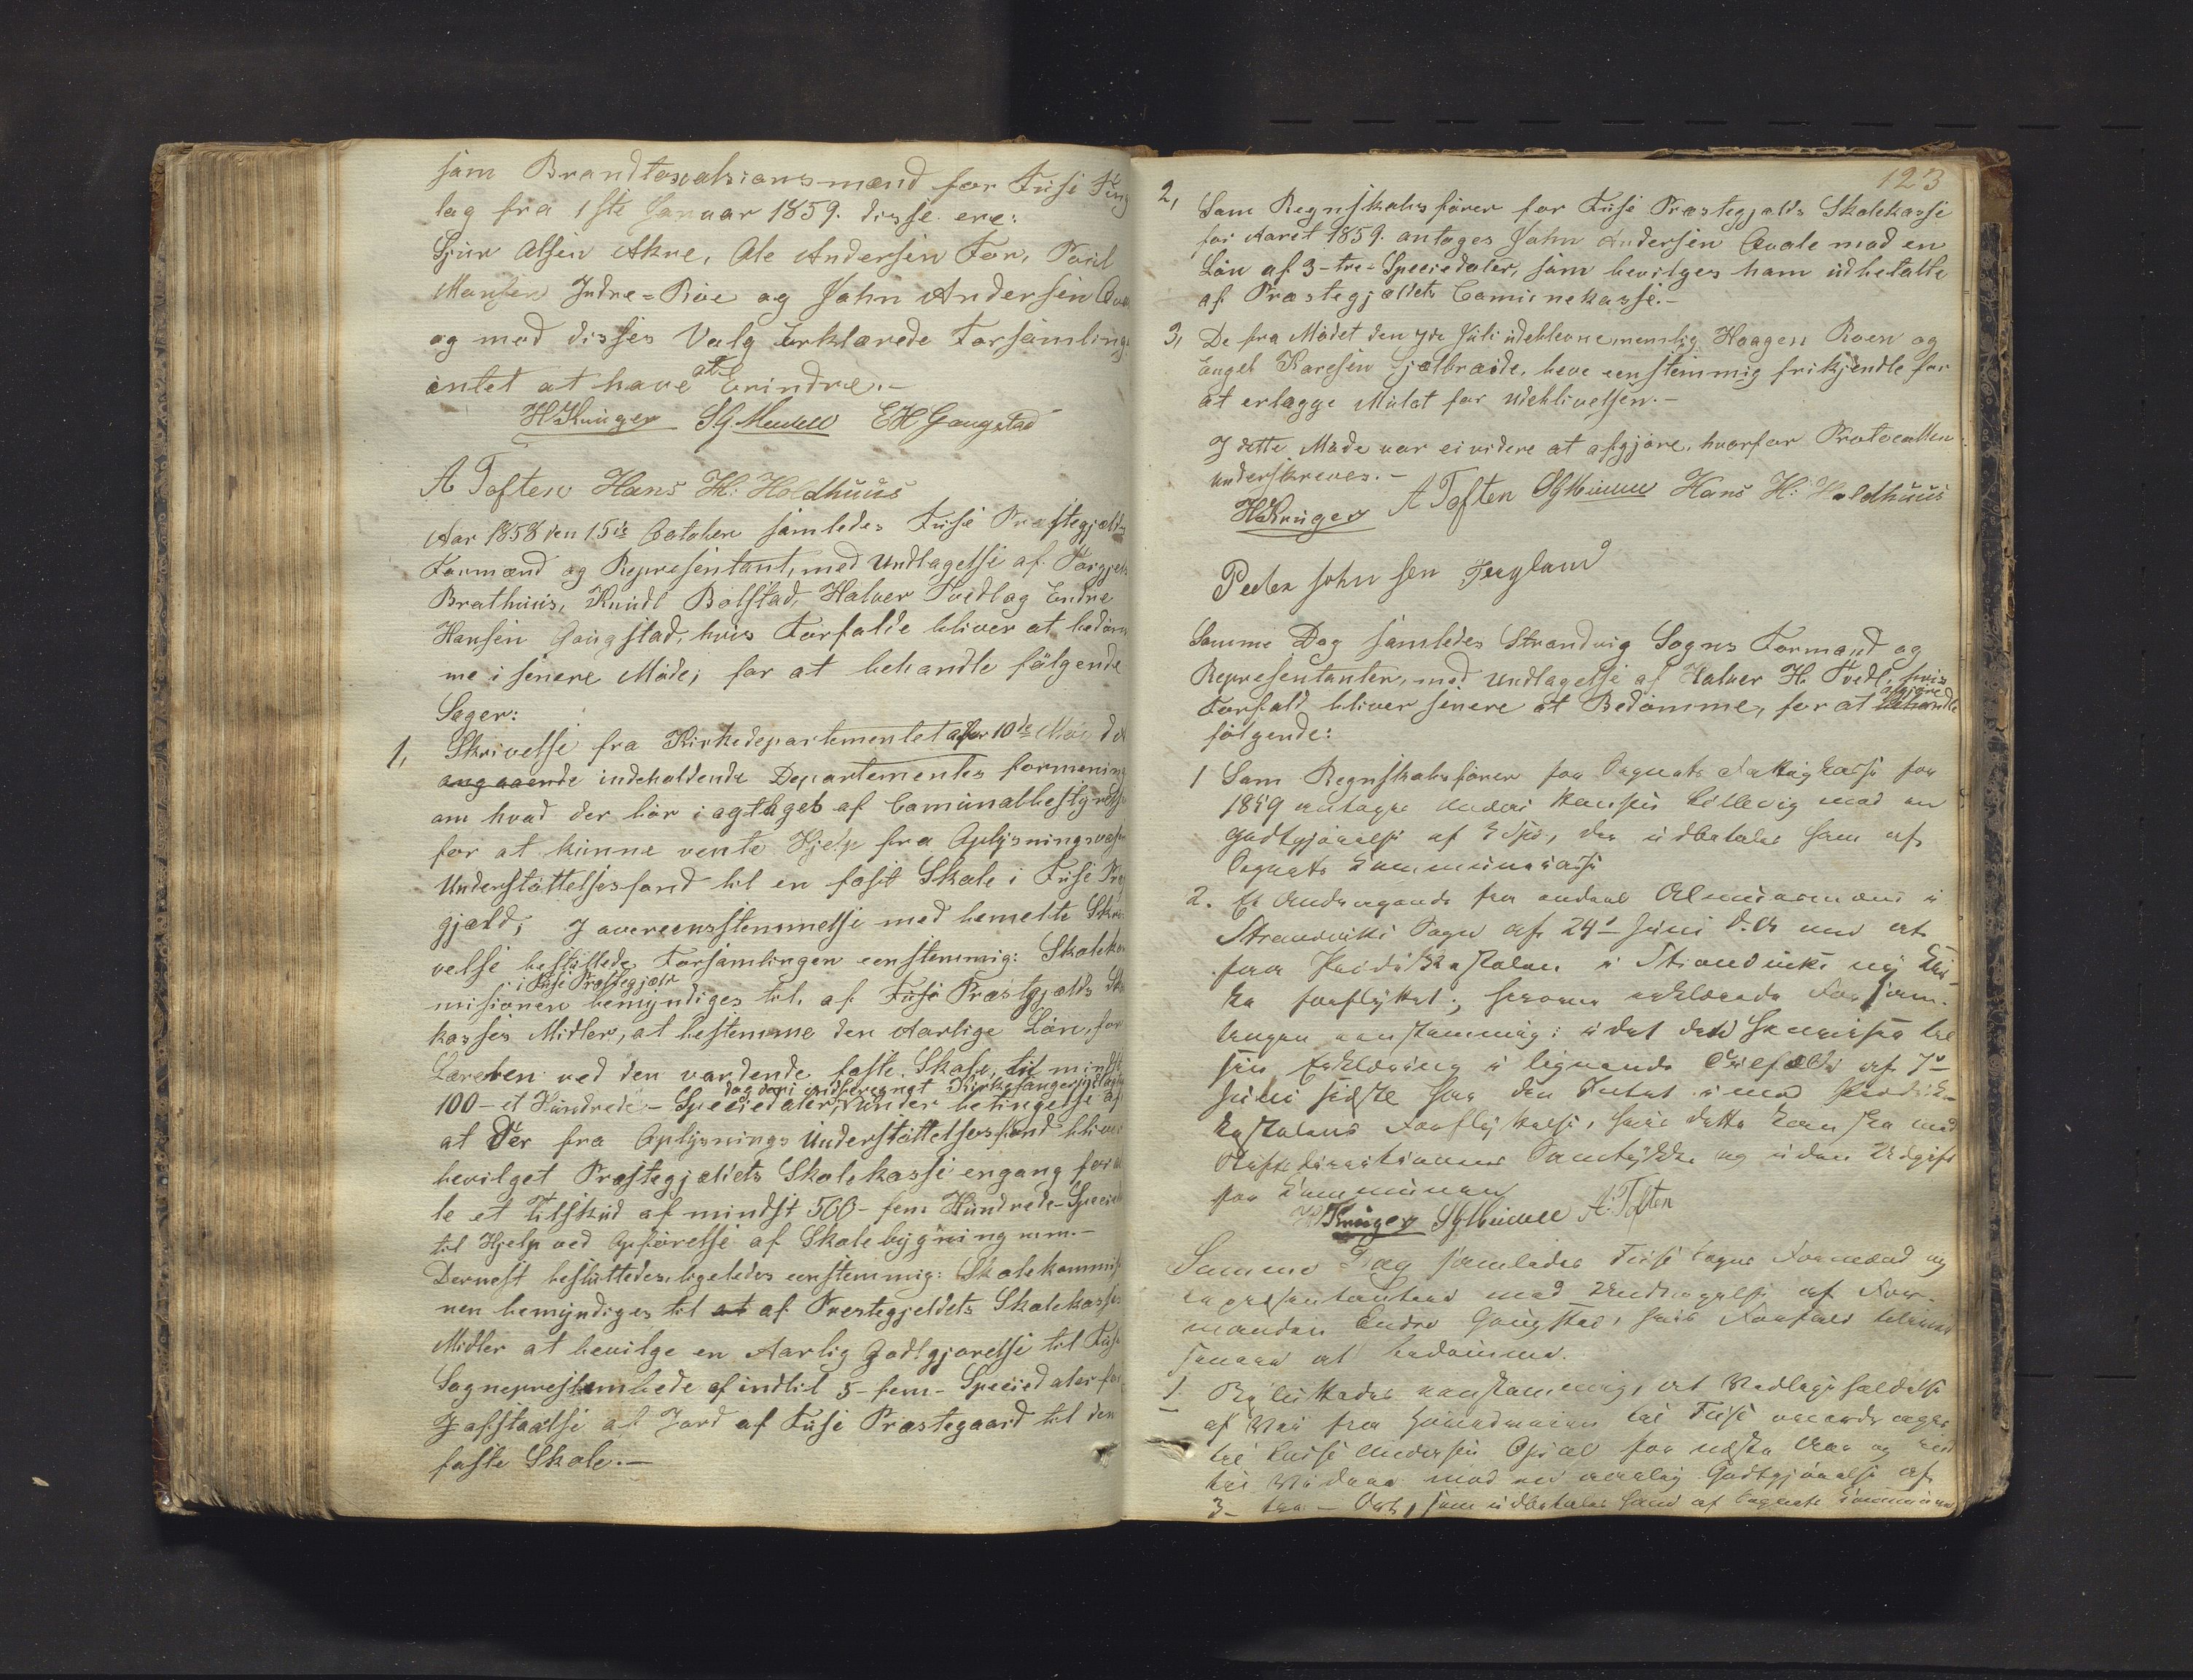 som Brandtaxationsmænd for Fuse Ting
lag fra 1ste Januar 1859. disse ere:
Sjur Olsen Ekre, Ole Andersen Tær, Poul
Monsen Indre-Røe og John Andersen Qva
og med disses Valg Erklærede Forsamling
intet at have at Erindre.-
HKrüger SG. EH Gaugstad
A Toften Hans H: Holdhuus
Aar 1858 den 15de October samledes Fuse Præstegjælds
Formænd og Representant, med Undtagelse af
Brathuus, Knudt Bolstad, Halver Tvedt og Endre
Hansen Gaugstad, hvis Forfalde bliver at bedøm
me i senere Møde; for at behandle følgende
Sager:
1, Skrivelse fra Kirkedepartementet af 10de
angaaende indeholdende Departementes formening
om hvad der bør iagttages af Comunalbestyrelse
for at kunne vente Hjelp fra Oplysningsvæs
Understøttelsesfond til en fast Skole i Fuse Præ
gjæld; I overeensstemmelse med bemelte Skri
velse besluttede Forsamlingen eenstemmig: Skolekom
i Fuse Præstegjæld
misionen bemyndiges til, af Fuse Præstgjælds Sko
kasses Midler, at bestemme den Aarlige Løn, for
Læreren ved den vordende faste Skole, til mindst
dog deri iberegnet Kirkesanger
100- et Hundrede- Speciedaler, under betingelse af
at der fra Oplysnings Understøttelsesfond bliver
bevilget Præstegjældets Skolekasse engang for al
le et Tilskud af mindst 500- fem Hundrede- Specied
til Hjelp ved Opførelse af Skolebygning m.m.-
Dernest besluttedes, ligeledes eenstemmig: Skolekommis
nen bemyndiges til at af Prestegjeldets Skolekasses
Midler at bevilge en Aarlig Godtgjørelse til Fuse
Sogneprestembede af indtil 5- fem- Speciedaler for
Afstaaelse af Jord af Fuse Præstegaard til den
faste Skole.-
123
2, Som Regnskabsfører for Fuse Præstegjælds Skolekasse
for Aaret 1859. antages John Andersen Qvale mod en
Løn af 3-tre-Speciedaler, som bevilges ham udbetalte
af Præstegjældets Comunekasse.-
3, De fra Mødet den 7de Juli udeblevne, nemlig Haagen Roen og
Engel Karesen Gjælbræide, bleve eenstemmig frikjendte for
at erlægge Mulct for Udeblivelsen.-
I dette Møde var ei videre at afgjøre, hvorfor Protocollen
underskreves.-
HKrüger A Toften Hans H: Holdhuus
Peder Johnsen Teigland
Samme Dag samledes Strandvig Sogns Formænd og
Representanter, med Undtagelse af Halver H. Tvedt, hvis
afgjøre
Forfald bliver senere at Bedømme, for at behandle
følgende:
1 Som Regnskabsfører for Sognets Fattigkasse for
1859 antages Anders Hansen Lillevig mod en
Godtgjørelse af Spd., der udbetales ham af
Sognets Kommunekasse
2. Et Andragende fra endeel Almuesmænd i
Strandviks Sogn af 24de Juni d. A. om at
faa Prædikestolen i Strandviks ny Kir-
ke forflyttet; hvorom erklærede Forsam-
lingen eenstemmig: i det den henviser til
sin Erklæring i lignende Tilfælde af 7de
Juni sidste har den Intet imod Prædike-
kestolens Forflyttelse, hvis dette kan ske med
Stiftsdirectionens Samtykke og uden Udgift
for Kommunen
HKrüger A. Toften
Samme Dag samledes Fuse Sogns Formænd og
Repræsentanter med Undtagelse af For-
manden Endre Gaugstad, hvis Forfald bliver
senere at bedømme.
1. Besluttedes eenstemmig, at Vedligeholdelse
af Vei fra til Fuse overdrages
til Andersen Opsal for næste Aar og
til Videre mod en aarlig Godtgjørelse af
3- tre- Ort, som udbetales ham af Sognets Kommune